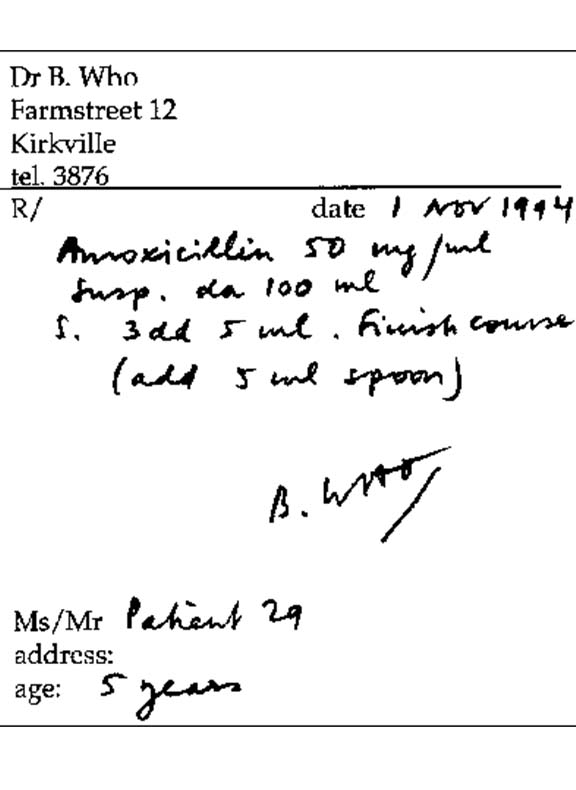 Dr B. Who
Farmstreet 12
Kirkville
tel. 3876
R/ date 1 Nov 1994
Amoxicillin 50 mg/ml
Susp. da 100 ml
S. 3 dd 5 ml. Finish course
(add 5 ml spoon)
B. WHO
Ms/Mr Patient 29
address:
age: 5 years